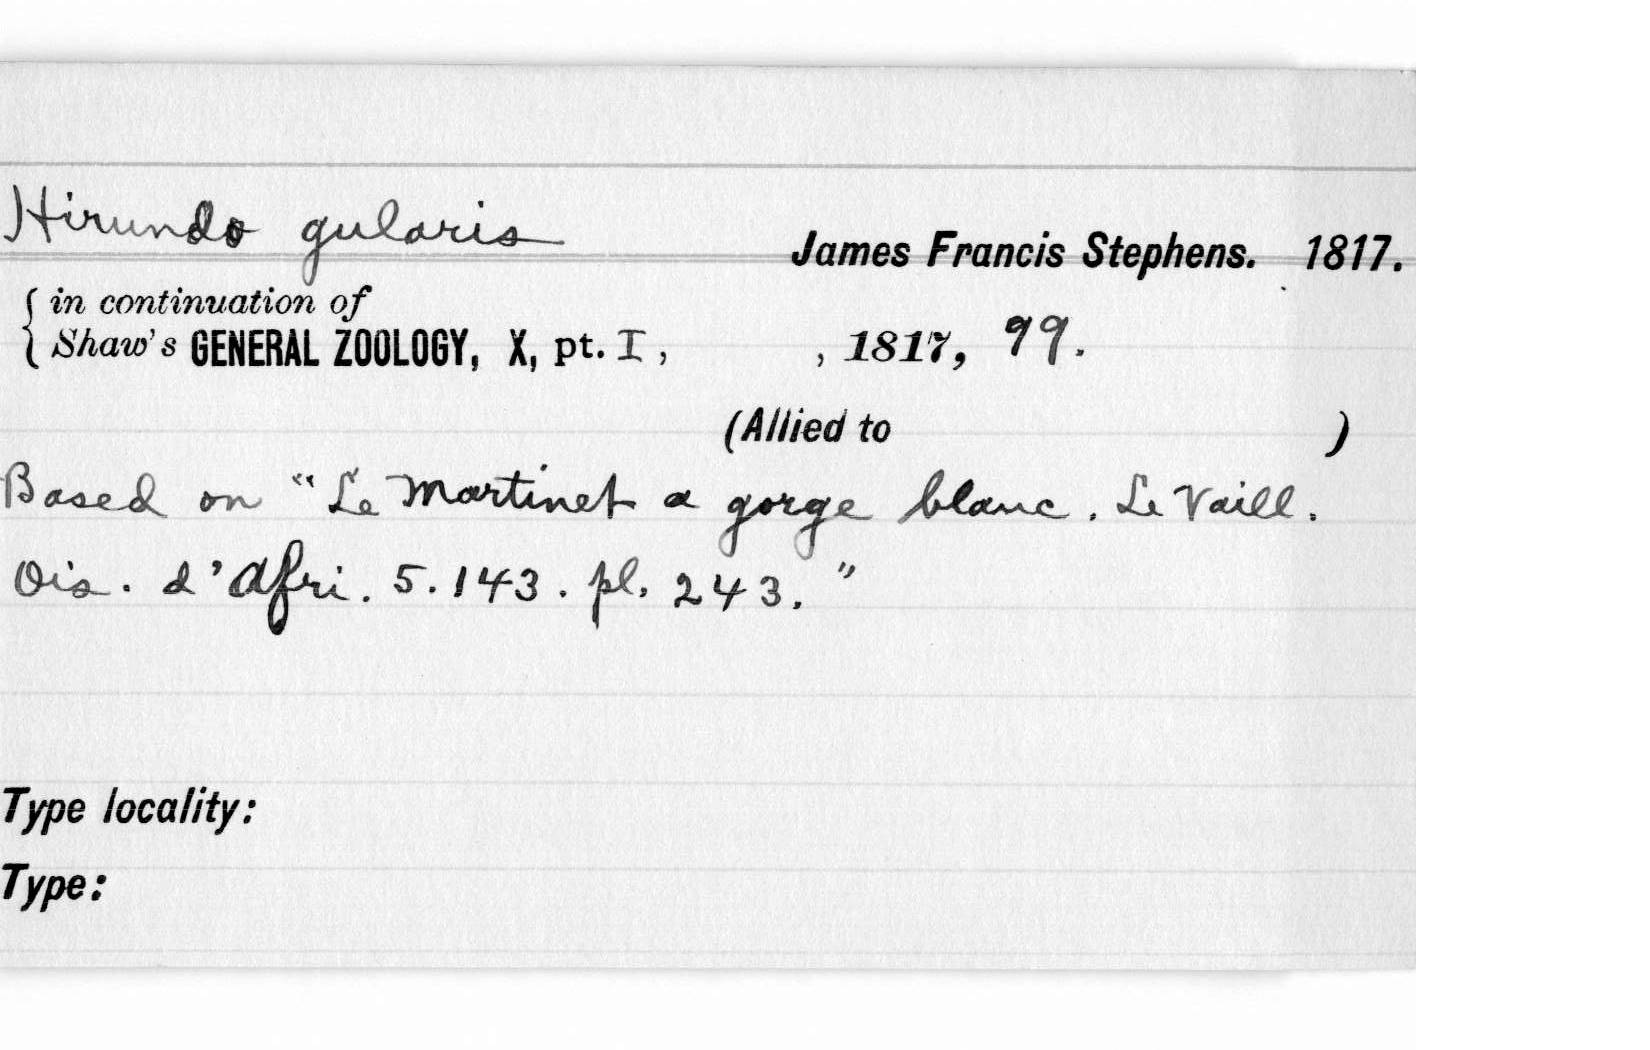 Hirundo gularis James Francis Stephens. 1817.
{ in continuation of
Shaw's GENERAL ZOOLOGY, X, pt. I, , 1817, 99.
(Allied to )
Based on "Le Martinet a gorge blanc. Le Vaill.
Ois. d'Afri. 5. 143. pl. 243."
Type locality:
Type: